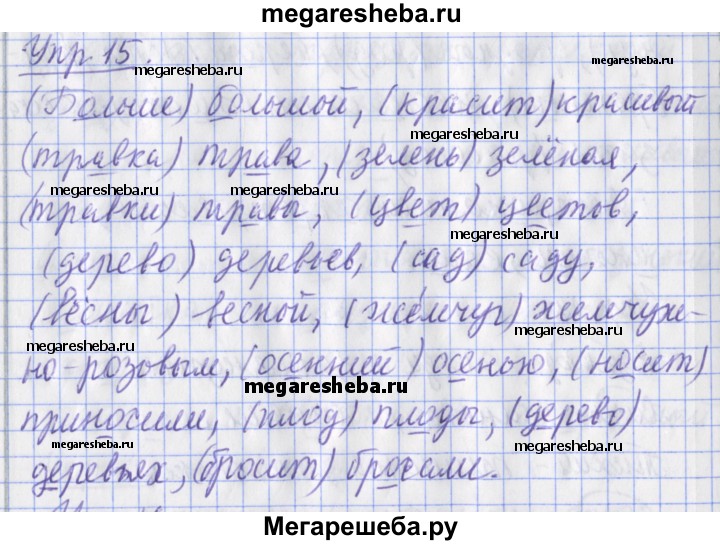 megaresheba.ru
Упр 15.
megaresheba.ru
megaresheba.ru
(Больше) большой, (красит) красивый
megaresheba.ru
(травка) трава, (зелень) зелёная,
megaresheba.ru
megaresheba.ru
(травки) травы, (цвет) цветов,
megaresheba.ru
(дерево) деревьев, (сад) саду,
(вёсны) весной, (жемчуг) жемчуж-
megaresheba.ru
megaresheba.ru
но-розовым, (осенний) осенью, (носит)
megaresheba.ru
megaresheba.ru
приносили, (плод) плоды, (дерево)
megaresheba.ru
megaresheba.ru
деревьях, (бросит) бросали.
Мегарешеба.ру